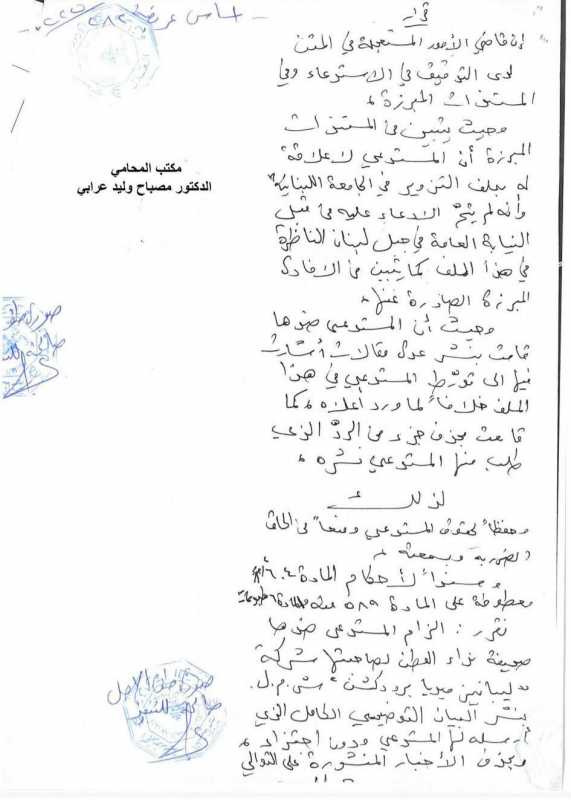 قرار
ان قاضي الأمور المستعجلة في المتن
لدى التدقيق في الاستدعاء وفي
المستندات المبرزة،
وحيث يتبين من المستندات
المبرزة أن المستدعي لا علاقة
له بملف التزوير في الجامعة اللبنانية
وأنه لم يتم الادعاء عليه من قبل
النيابة العامة في جبل لبنان الناظرة
في هذا الملف كما يتبين من الافادة
المبرزة الصادرة عنها،
وحيث أن المستدعى ضدها
قامت بنشر عدة مقالات أشارت
فيها الى تورّط المستدعي في هذا
الملف خلافاً لما ورد أعلاه، كما
قامت بحذف جزء من الردّ الذي
طلب منها المستدعي نشره،
لذلك
وحفظاً لحقوق المستدعي ومنعاً من الحاق
الضرر به وبسمعته،
وسنداً لأحكام المادة ٦٠٤
معطوفة على المادة ٥٨٩ منه والمادة ٦
نقرر: الزام المستدعى ضدها
صحيفة نداء الوطن لصاحبتها شركة
"ليبانيز ميديا برودكشن" ش.م.ل.
بنشر البيان التوضيحي الكامل الذي
أرسله لها المستدعي ودون اجتزاء،
وبحذف الأخبار المنشورة على التوالي
مكتب المحامي
الدكتور مصباح وليد عرابي
صورة طبق الأصل